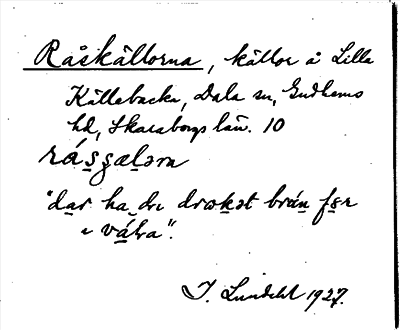 Råskällorna, källor å Lilla
Källebacka, Dala sn, Gudhems
hd, Skaraborgs län. 10
rásgælǝrn
"dar ha di drækǝt brán før
i vátra".
J. Lundahl 1927.